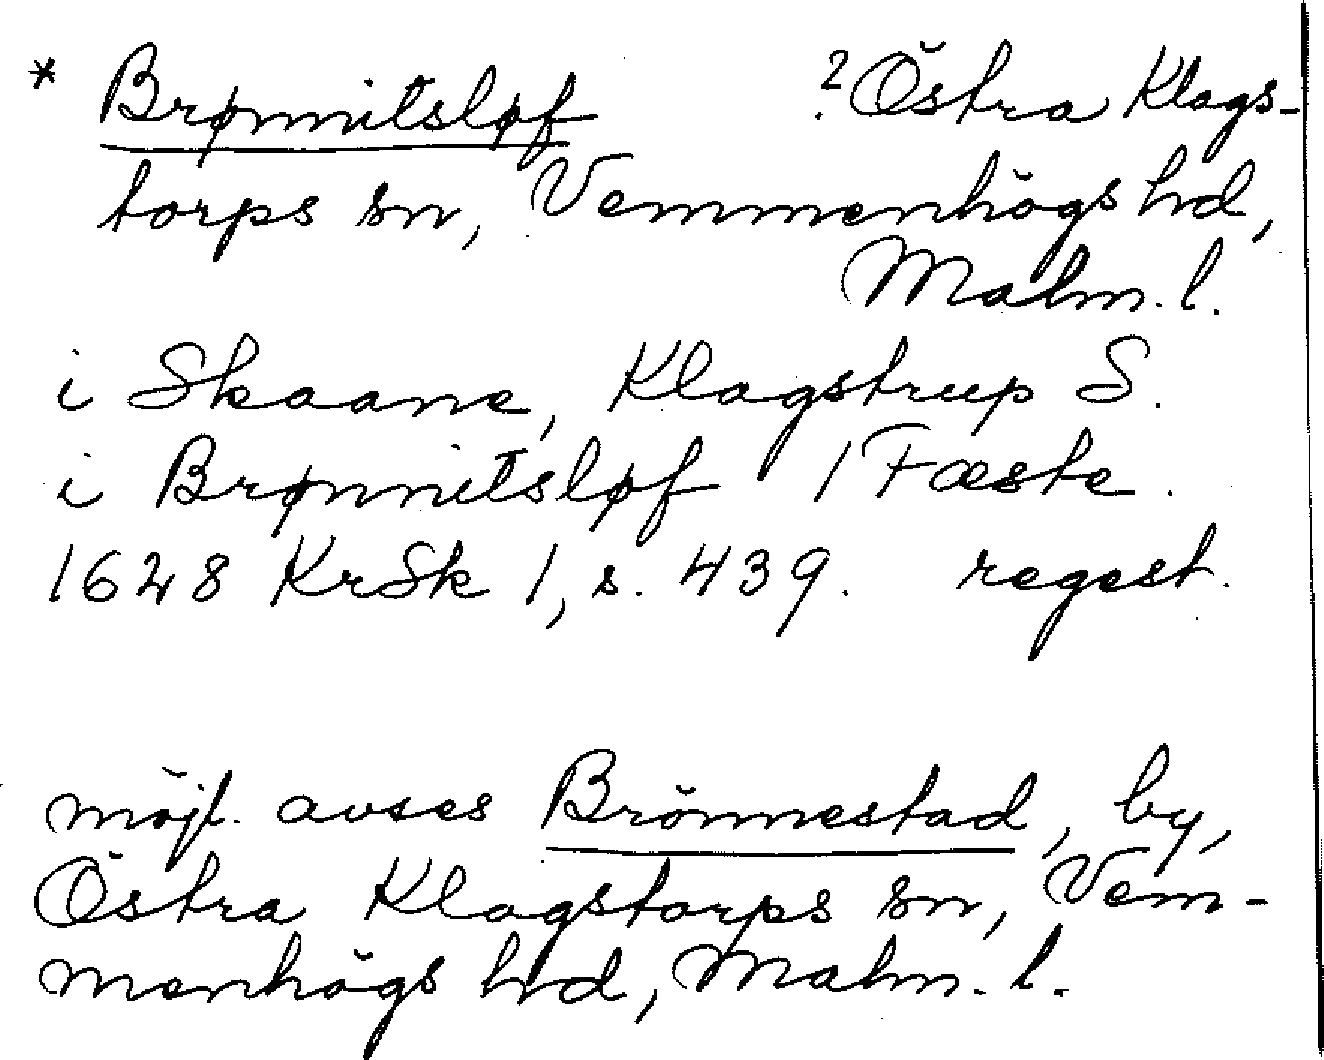 * Brønnitsløf ? Östra Klags-
torps sn, Vemmenhögs hd,
Malm. l.
i Skaane, Klagstrup S.
i Brønnitsløf 1 Fæste.
1628 KrSk 1, s. 439. regest.
möjl. avses Brönnestad, by,
Östra Klagstorps sn, Vem-
menhögs hd, Malm. l.